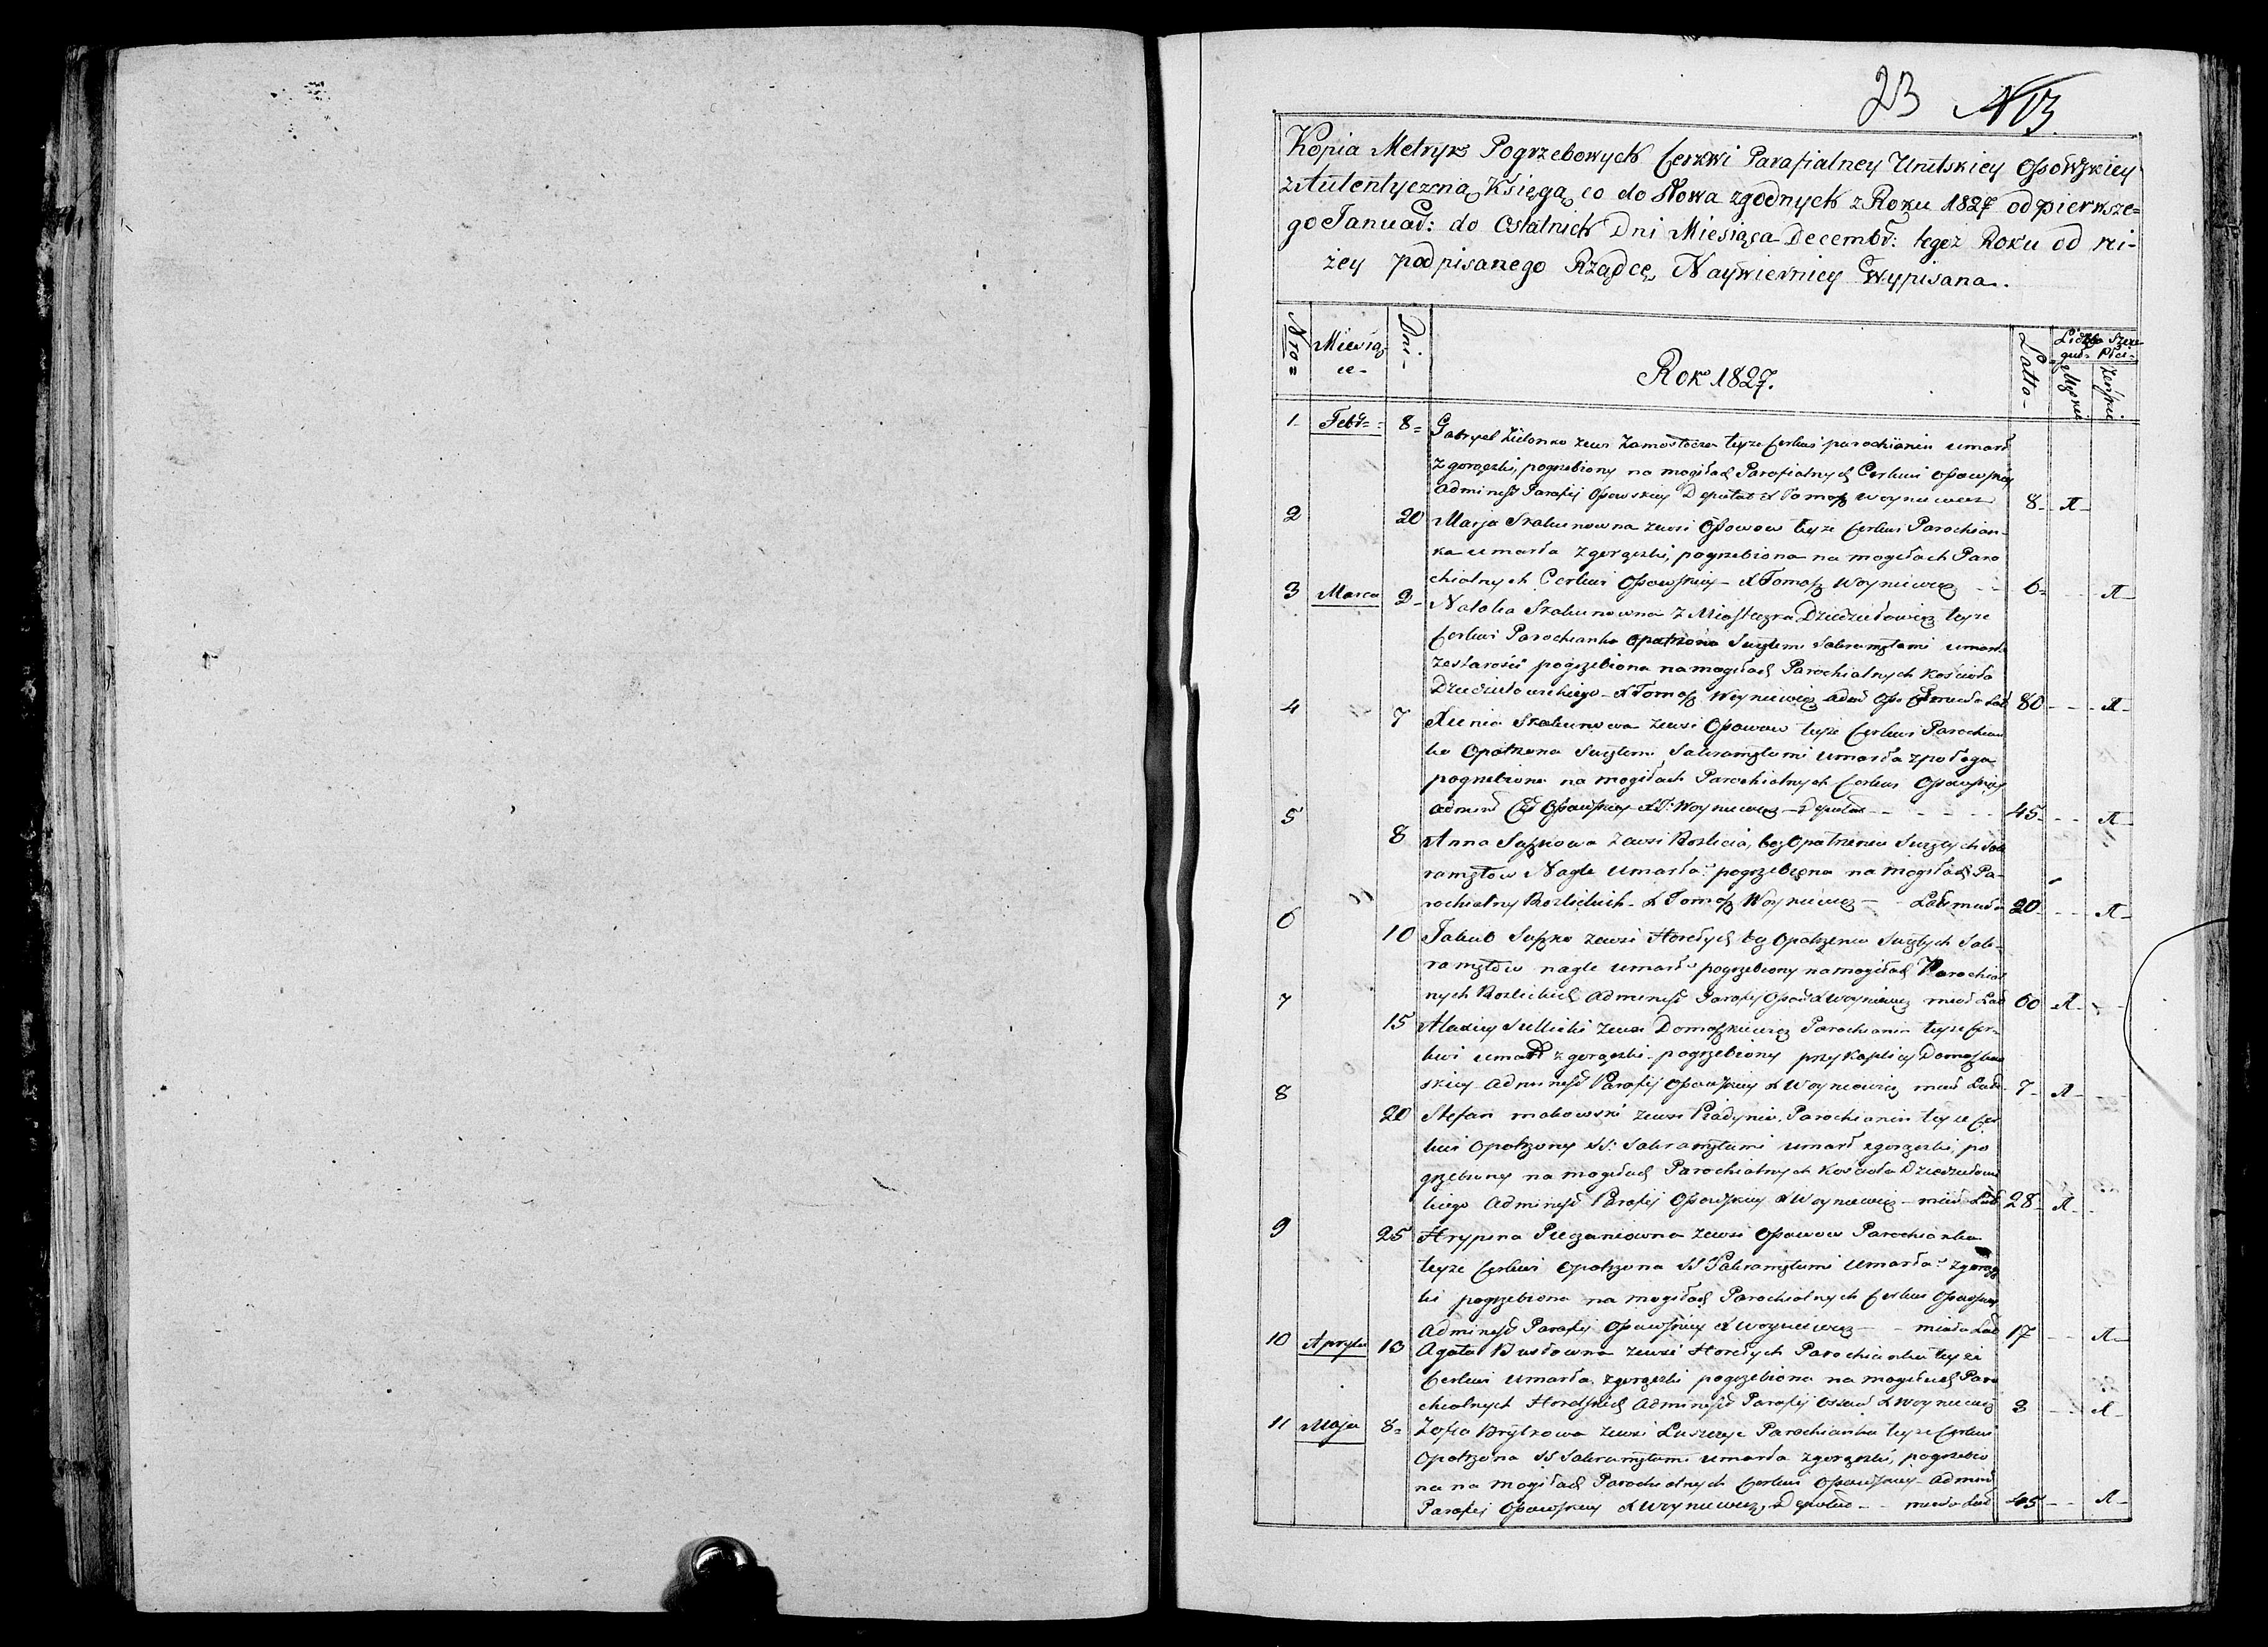 23 N 13.
Kopia Metryk Pogrzebowych Cerkwi Parafialney Unitskiey Ossowskiey
z Autentyczną Księgą co do Słowa zgodnych z Roku 1827 od pierwsze=
go Januar: do Ostatnich Dni Miesiąca Decembr: tegoż Roku od ni-
żey podpisanego Rządcę Naywierniey Wypisana.
Nro= Miesią- Dni- Latta- Liczba Szcze-
ce- Rok 1827. gul= Płci-
Męzkiej Żeńskiej
1- Febr= 8= Gabryel zewsi Zamostocza teyże Cerkwi parochianin umarł
z gorączki, pogrzebiony na mogiłach Parafialnych Cerkwi Ossowskiey
Administr Parafij Ossowskiey Deputat X Tomasz Woyniewicz 8- Π-
2 20 Marja Szakunowna zewsi Ossowow teyże Cerkwi Parochian-
ka umarła z gorączki, pogrzebiona na mogiłach Paro
chialnych Cerkwi Ossowskiey- X Tomasz Woyniewicz - - 6- - - Π-
3 Marca 2- Natalia Szakunowna z Miasteczka Dziedziłowicz teyże
Cerkwi Parochianka opatrzona Swiętemi Sakramętami umarła
ze starości pogrzebiona na mogiłach Parochialnych Kościoła
Dziedziłowickiego- X Tomasz Woyniewicz miała Lat 80 - - - Π-
4 7 Xienia Szakunowa zewsi Ossowow teyże Cerkwi Parochian
ka Opatrzona Swiętemi Sakramętami umarła z połogu
pogrzebiona na mogiłach Parochialnych Cerkwi Ossowskiey
Ossowskiey X T: Woyniewicz- Deputat - - - - - 45- - - Π-
5 8 Anna Suszkowa zewsi bez Opatrzenia Swiętych Sak
ramętow Nagle umarła pogrzebiona na mogiłach Pa-
rochialny X Tomasz Woyniewicz - - Lat miała 20- - - Π-
6 10 Jakub Suszko zewsi bez Opatrzenia Swiętych Sak-
ramętow nagle umarł pogrzebiony na mogiłach Parochial
nych Administr Parafij Ossow X Woyniewicz miał Lat 60 Π- - -
7 15 zewsi Domaszkiewicz Parochianin teyże Cer-
kwi umarł z gorączki- pogrzebiony przy Kaplicy Domaszkie
skiey- Administr Parafij Ossowskiey X Woyniewicz miał Lat 7- Π- -
8 20 Stefan Makowski zewsi Parochianin teyże Cer
kwi Opatrzony SS: Sakramętami umarł z gorączki, po
grzebiony na mogiłach Parochialnych Kościoła Dziedziłowic
kiego Administr Parafij Ossowskiey X Woyniewicz- miał Lat 28- Π- -
9 25 Hrypina zewsi Ossowow Parochianka
teyże Cerkwi Opatrzona SS Sakramętami Umarła z gorącz
ki pogrzebiona na mogiłach Parochialnych Cerkwi Ossowskiey
Administr Parafij Ossowskiey X Woyniewicz- - miała Lat 17 - - Π-
10 Apryla 13 Agata zewsi Parochianka teyże
Cerkwi umarła z gorączki pogrzebiona na mogiłach Paro
chialnych Administr Parafij Ossow X Woyniewicz 3 - - Π-
11 Maja 8= Zofia zewsi Parochianka teyże Cerkwi
Opatrzona SS Sakramętami umarła z gorączki, pogrzebio
na na mogiłach Parochialnych Cerkwi Ossowskiey- Admin
Parafij Ossowskiey X Woyniewicz, Deputat - - miała Lat 45 - - Π-